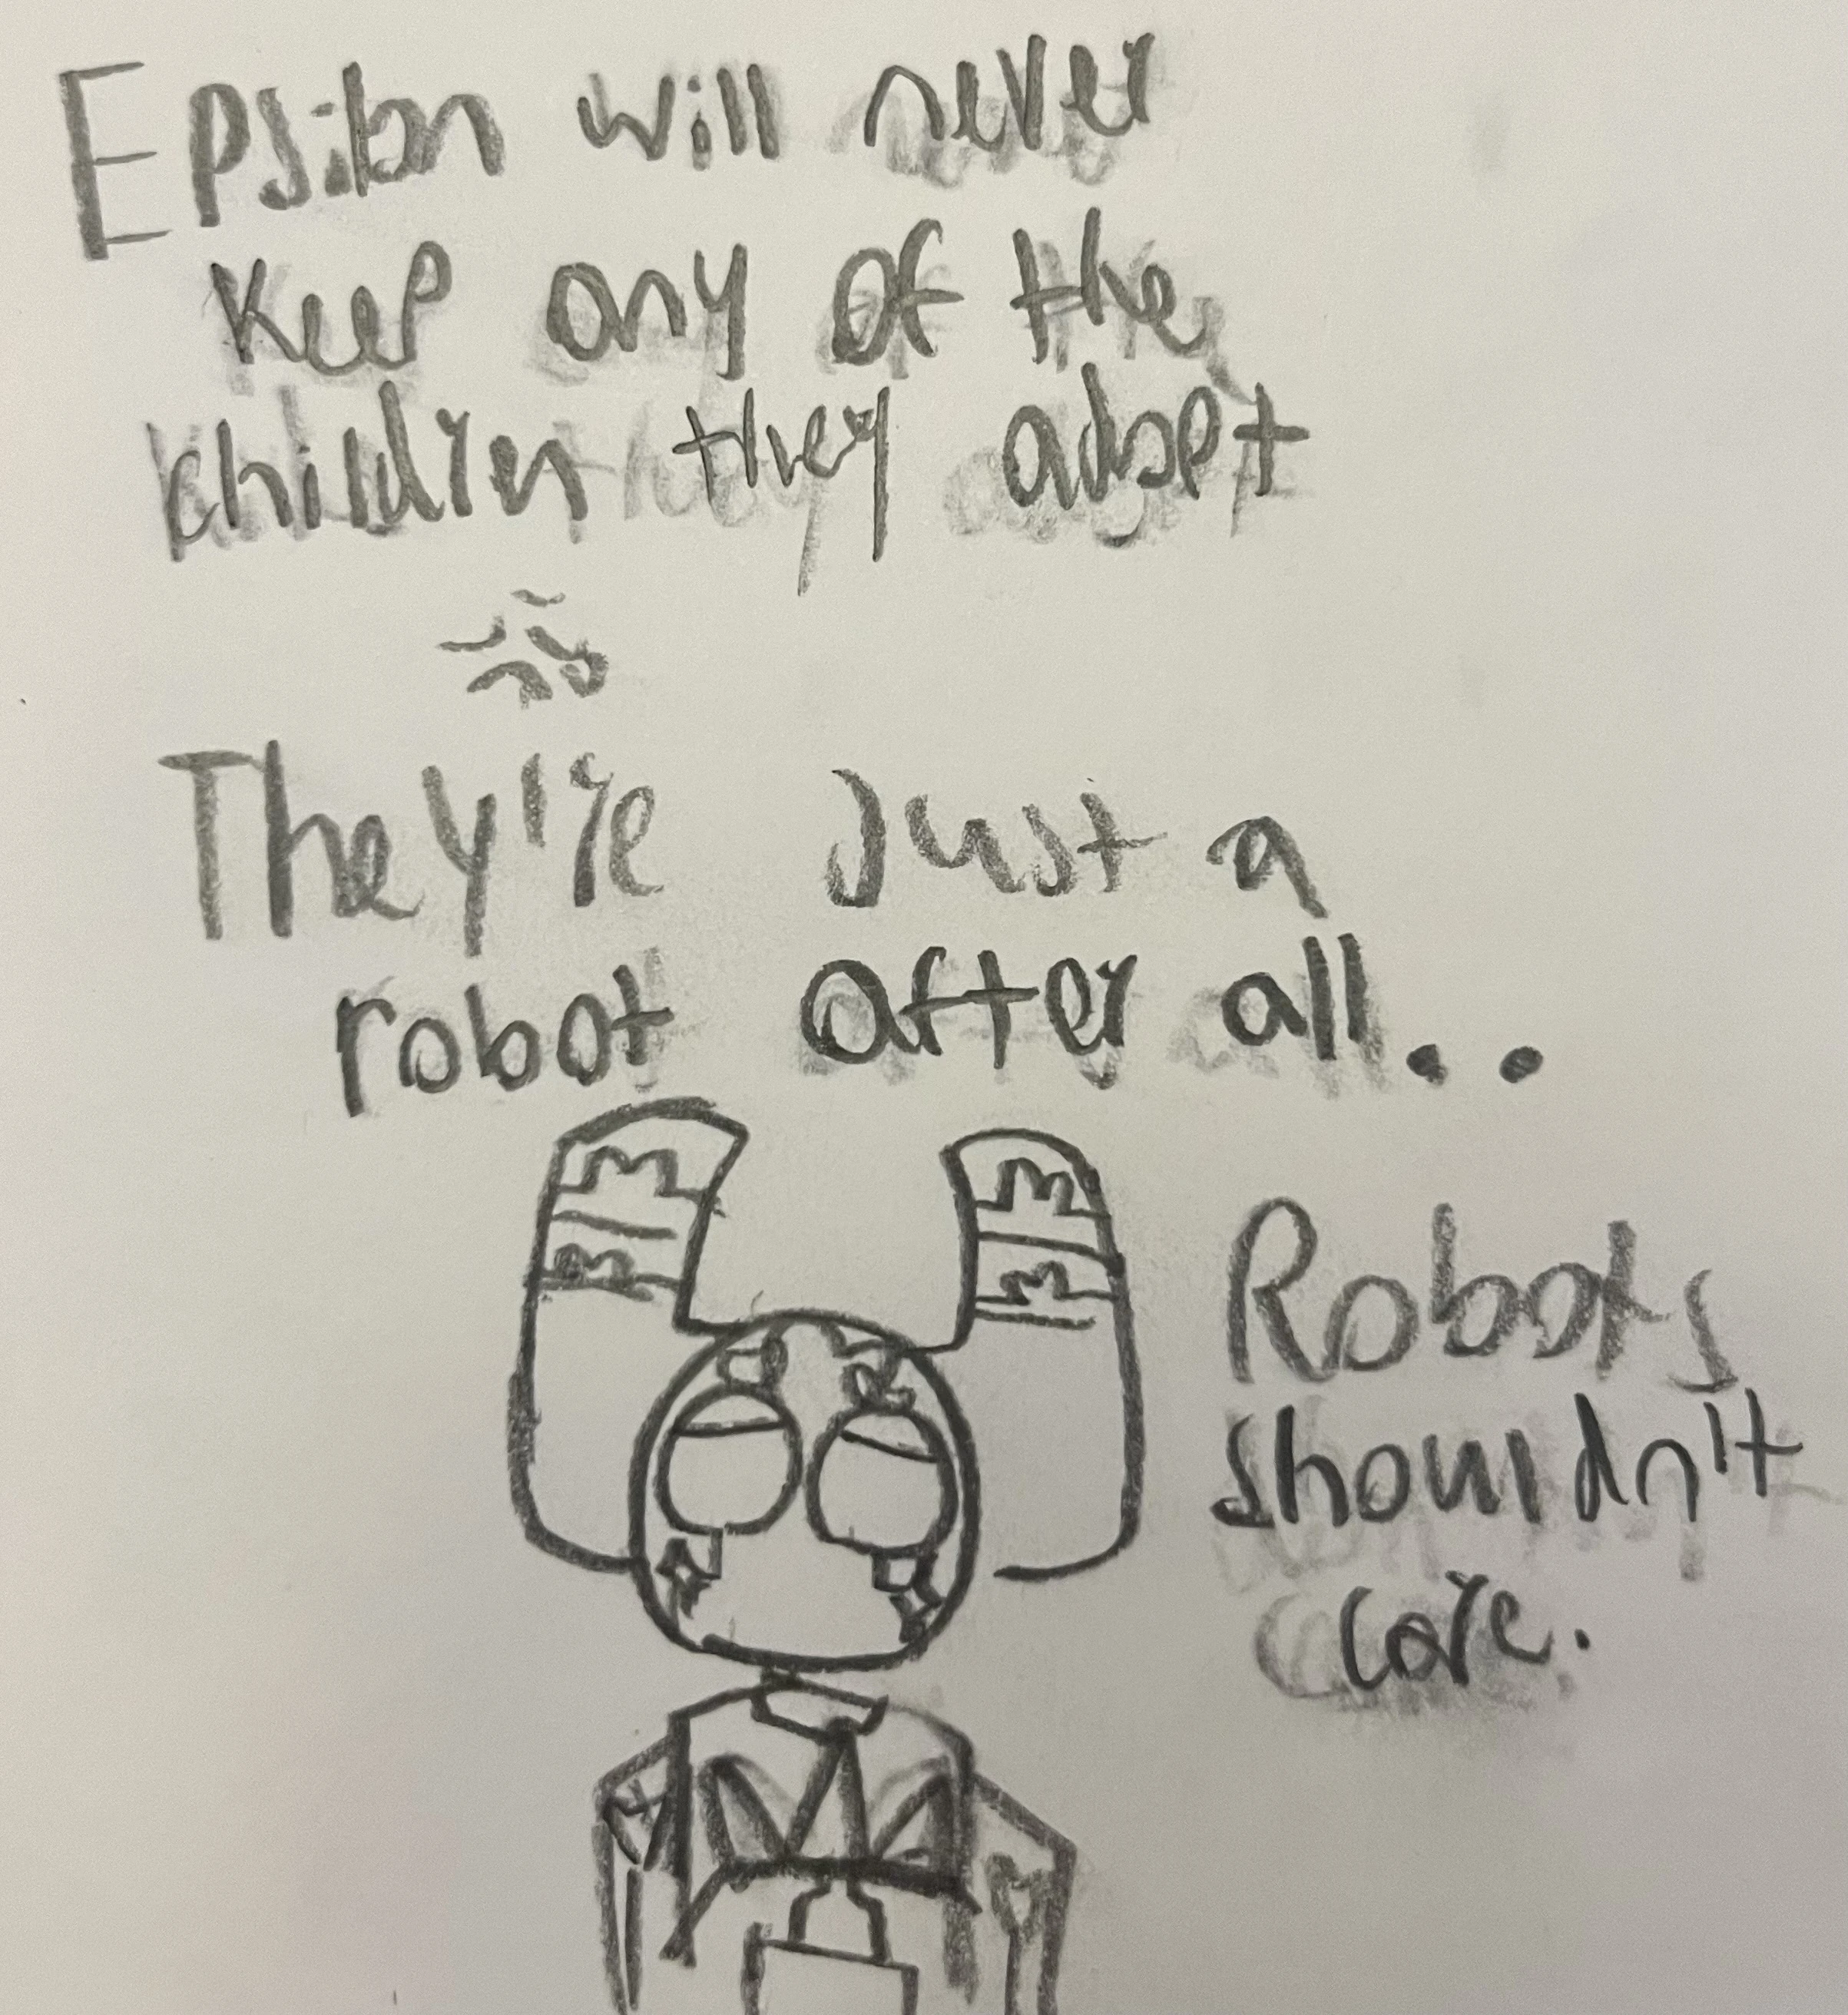 Epsilon will never
keep any of the
children they adopt
They're Just a
robot after all..
Robots
shouldn't
care.